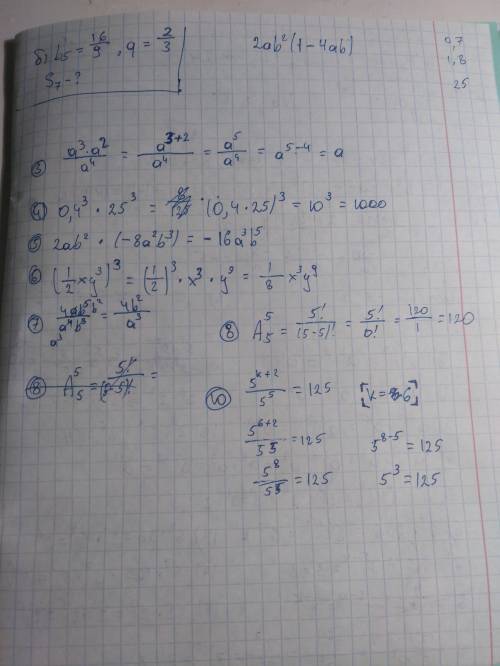 б) b₅ = 16/9, q = 2/3
S₇ - ?
2ab²(1-4ab)
0,7
1,8
25
③ a³·a²/a⁴ = a³⁺²/a⁴ = a⁵/a⁴ = a⁵⁻⁴ = a
④ 0,4³ · 25³ = (0,4·25)³ = 10³ = 1000
⑤ 2ab² · (-8a²b³) = -16a³b⁵
⑥ (1/2 xy³)³ = (1/2)³ · x³ · y⁹ = 1/8 x³y⁹
⑦ 4ab⁵b²/a⁴b³ = 4b²/a³
a³
⑧ A₅⁵ = 5!/(5-5)! = 5!/0! = 120/1 = 120
⑧ A₅⁵ = 5!/(5-5)! =
⑩ 5ᵏ⁺²/5⁵ = 125 [k=6]
5⁶⁺²/5⁵ = 125 5⁸⁻⁵ = 125
5⁸/5⁵ = 125 5³ = 125